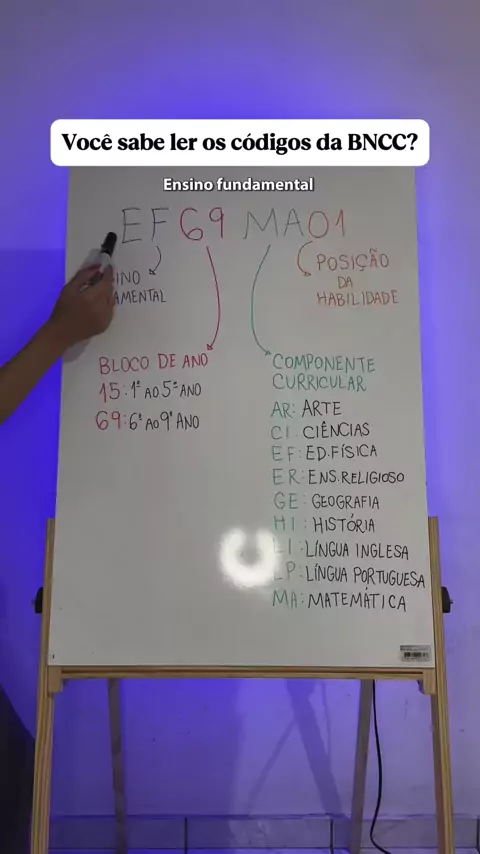 Você sabe ler os códigos da BNCC?
Ensino fundamental
EF69MA01
POSIÇÃO
DA
HABILIDADE
BLOCO DE ANO
15: 1º AO 5º ANO
69: 6º AO 9º ANO
COMPONENTE
CURRICULAR
AR: ARTE
CI: CIÊNCIAS
EF: ED.FÍSICA
ER: ENS.RELIGIOSO
GE: GEOGRAFIA
HI: HISTÓRIA
LI: LÍNGUA INGLESA
LP: LÍNGUA PORTUGUESA
MA: MATEMÁTICA